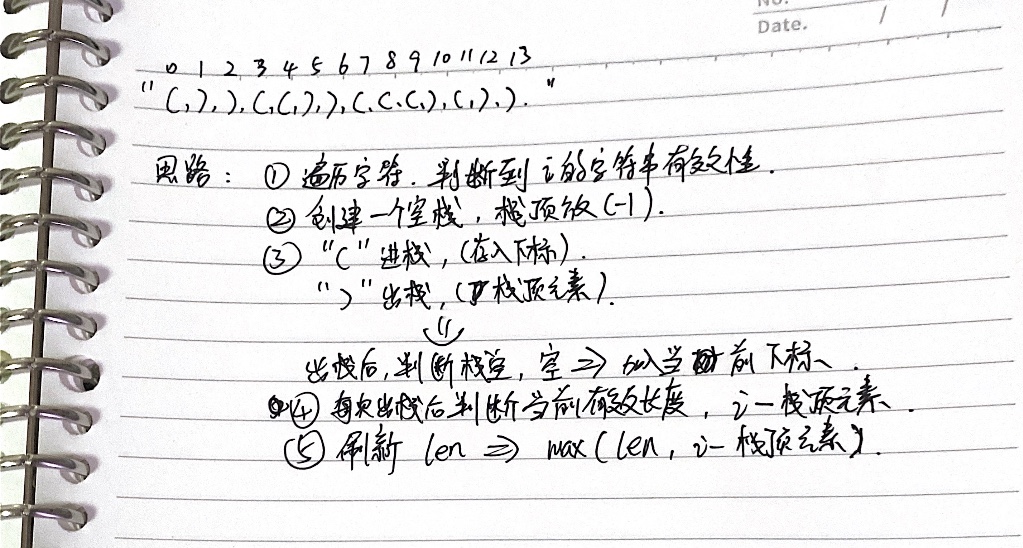 No.
Date. / /
0 1 2 3 4 5 6 7 8 9 10 11 12 13
"(,),),(,(,),),(,(,(,),(,),)."
思路: ① 遍历字符.判断到i的字符串有效性.
② 创建一个空栈,栈顶放(-1).
③ "(" 进栈,(存入下标).
")" 出栈,(栈顶元素).
出栈后,判断栈空,空 ⇒ 加入当前下标.
④ 每次出栈后判断当前有效长度, i-栈顶元素.
⑤ 刷新 len ⇒ max(len, i-栈顶元素).